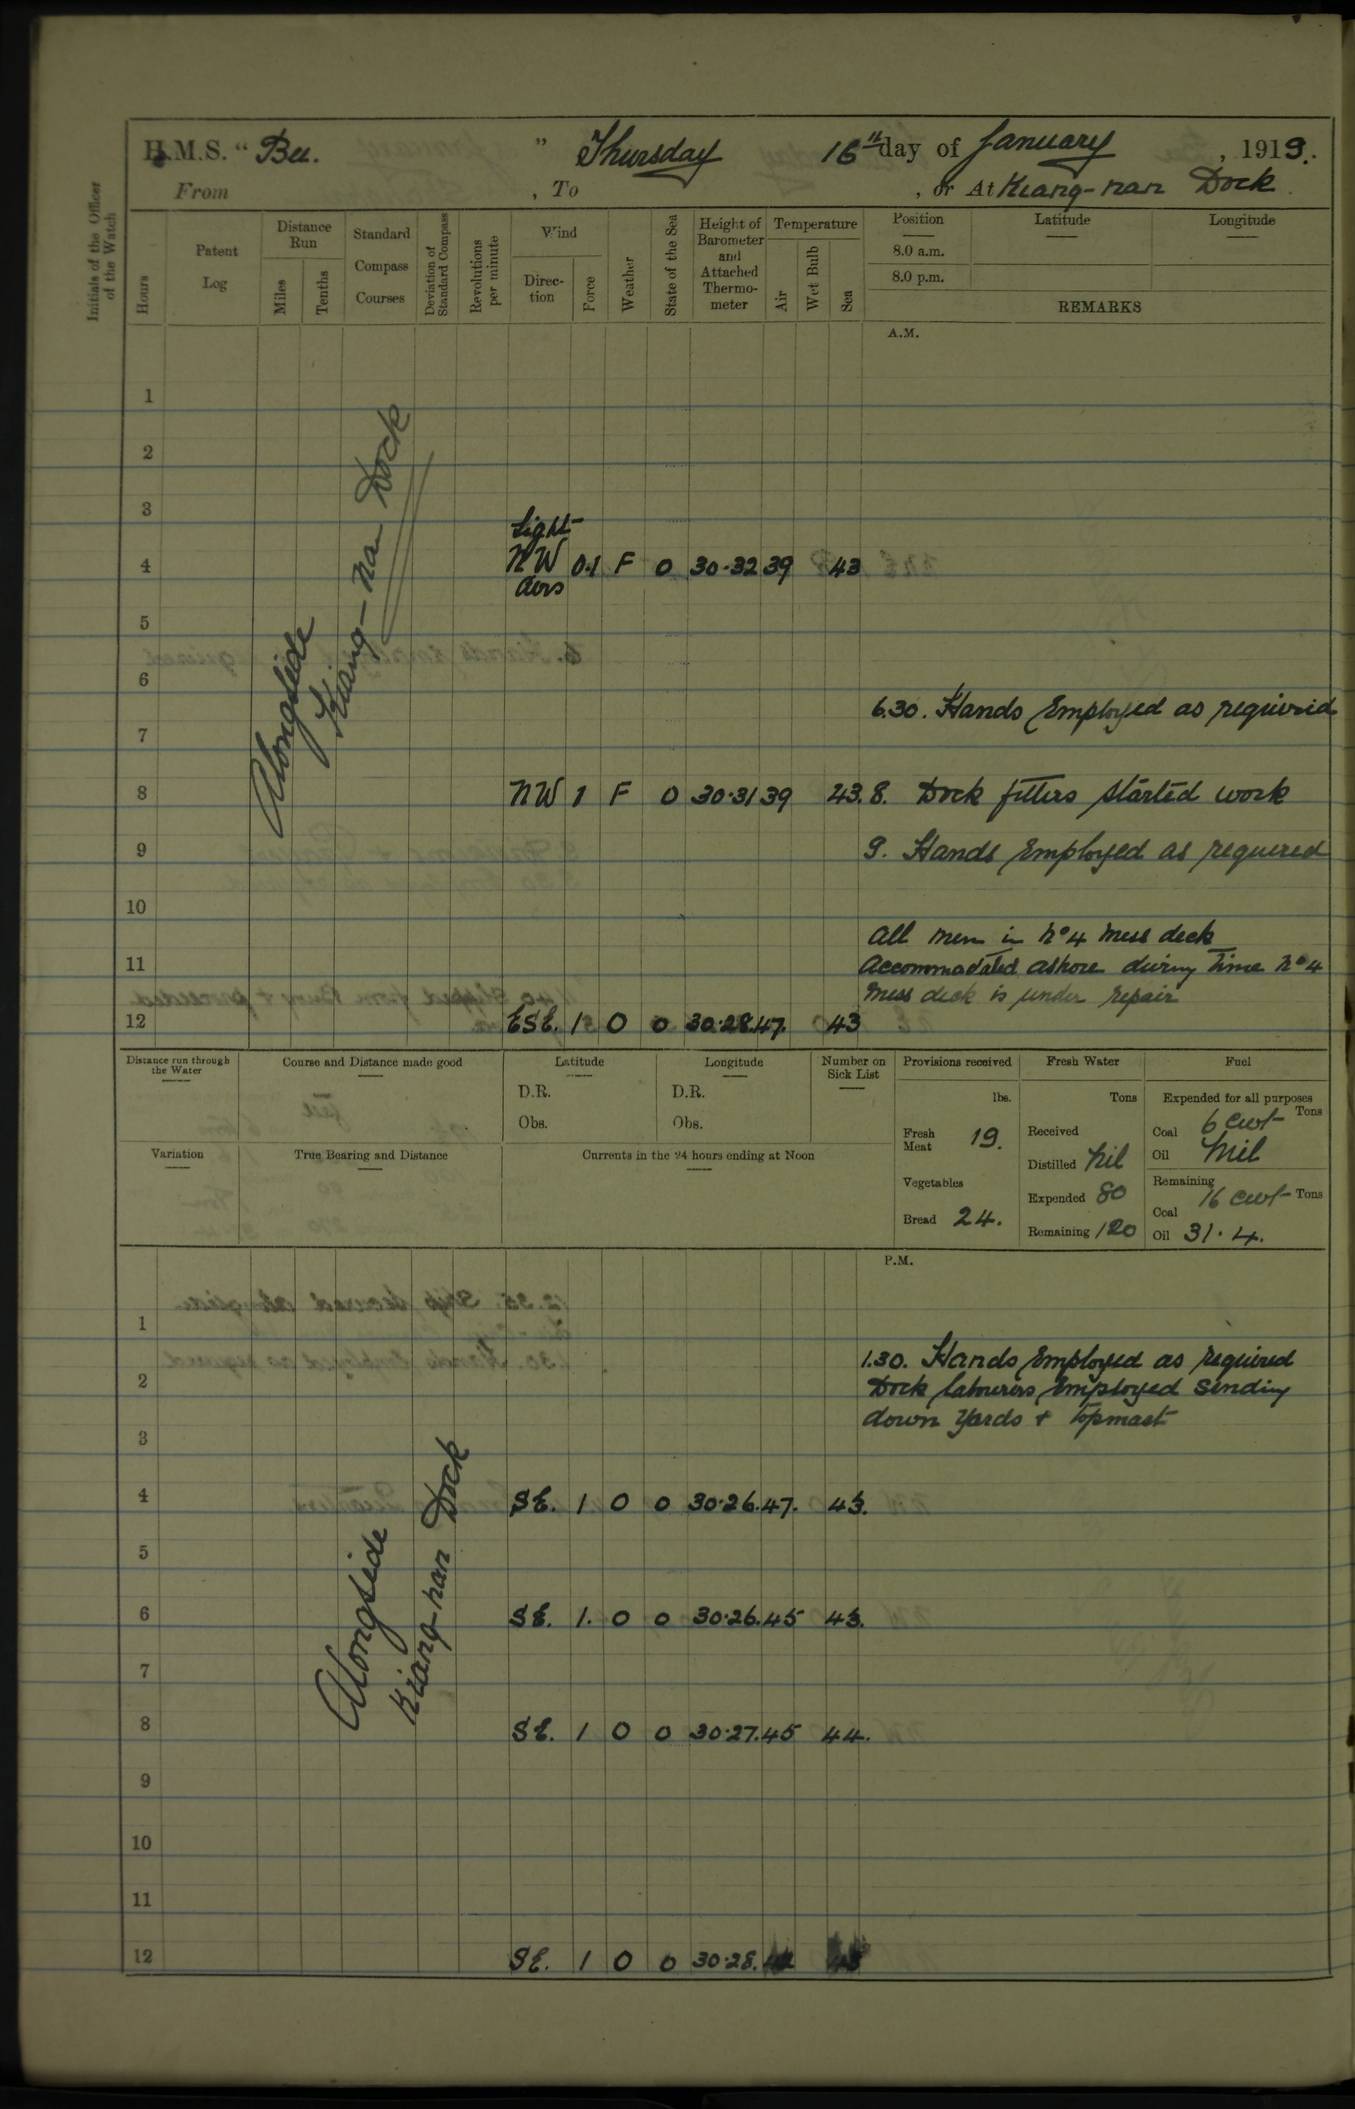 H.M.S. "Bee." Thursday 16th day of January, 1919.
From , To , or At Kiang-nan Dock.
Initials of the Officer of the Watch
Hours
Patent Log
Distance Run
Miles
Tenths
Standard Compass Courses
Deviation of Standard Compass
Revolutions per minute
Wind
Direction
Force
Weather
State of the Sea
Height of Barometer and Attached Thermometer
Temperature
Air
Wet Bulb
Sea
Position
8.0 a.m.
8.0 p.m.
Latitude
Longitude
REMARKS
A.M.
1
2
3
Light
4 NW 0.1 F 0 30.32 39 43
Airs
5
6
Alongside
Kiang-na Dock
6.30. Hands Employed as required
7
8 NW 1 F 0 30.31 39 43. 8. Dock fitters started work
9 9. Hands Employed as required
10
All men in No 4 Mess deck
11 Accommodated ashore during time No 4
Mess deck is under repair
12 ESE. 1 O 0 30.28. 47. 43
Distance run through the Water
Course and Distance made good
Latitude
D.R.
Obs.
Longitude
D.R.
Obs.
Number on Sick List
Variation
True Bearing and Distance
Currents in the 24 hours ending at Noon
Provisions received
lbs.
Fresh Meat 19.
Vegetables
Bread 24.
Fresh Water
Tons
Received
Distilled Nil
Expended 80
Remaining 120
Fuel
Expended for all purposes
Coal 6 cwt Tons
Oil Nil
Remaining
Coal 16 cwt Tons
Oil 31.4.
P.M.
1
1.30. Hands Employed as required
2 Dock labourers Employed sending
down Yards & topmast
3
Alongside
Kiang-nan Dock
4 SE. 1 O 0 30.26. 47. 43.
5
6 SE. 1. O 0 30.26. 45 43.
7
8 SE. 1 O 0 30.27. 45 44.
9
10
11
12 SE. 1 O 0 30.28.